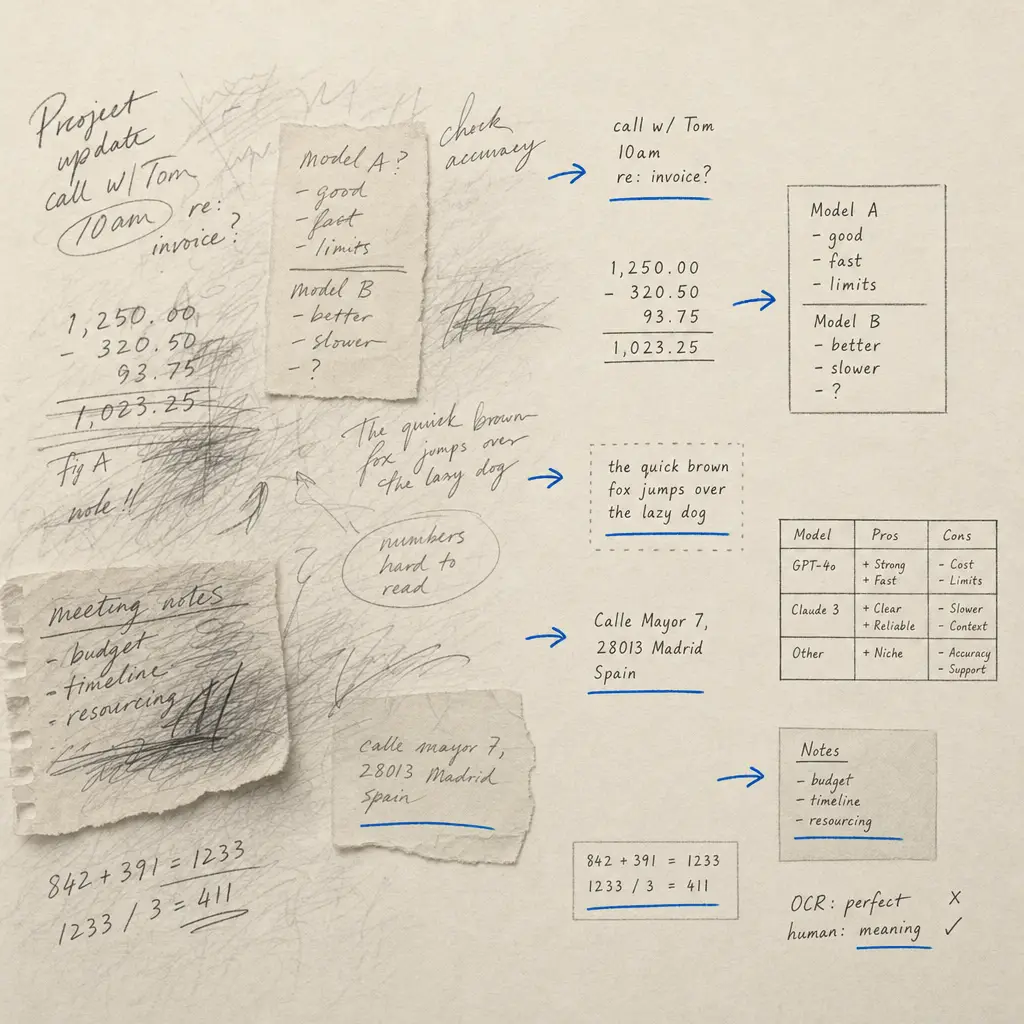 Project
update
call w/Tom
10am re:
invoice?
Model A?
- good
- fast
- limits
Model B
- better
- slower
- ?
check
accuracy
1,250.00
- 320.50
93.75
1,023.25
fig A
note!!
The quick brown
fox jumps over
the lazy dog
numbers
hard to
read
meeting notes
- budget
- timeline
- resourcing
calle mayor 7,
28013 Madrid
Spain
842 + 391 = 1233
1233 / 3 = 411
call w/ Tom
10am
re: invoice?
1,250.00
- 320.50
93.75
1,023.25
Model A
- good
- fast
- limits
Model B
- better
- slower
- ?
the quick brown
fox jumps over
the lazy dog
Calle Mayor 7,
28013 Madrid
Spain
Model Pros Cons
GPT-4o + Strong - Cost
+ Fast - Limits
Claude 3 + Clear - Slower
+ Reliable - Context
Other + Niche - Accuracy
- Support
Notes
- budget
- timeline
- resourcing
842 + 391 = 1233
1233 / 3 = 411
OCR: perfect X
human: meaning ✓